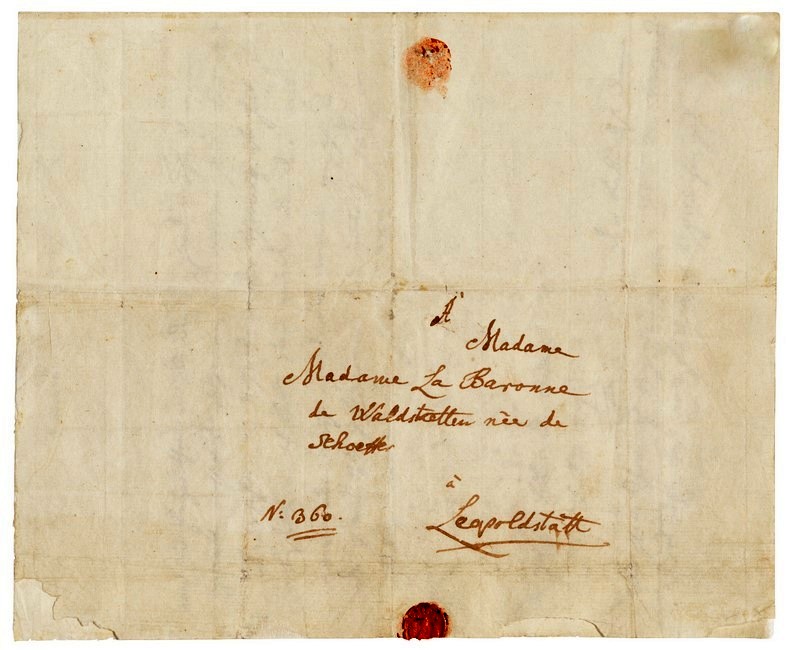 À
Madame
Madame La Baronne
de Waldstætten nèe de
Schoeffer
à
N: 360.
Leopoldstätt